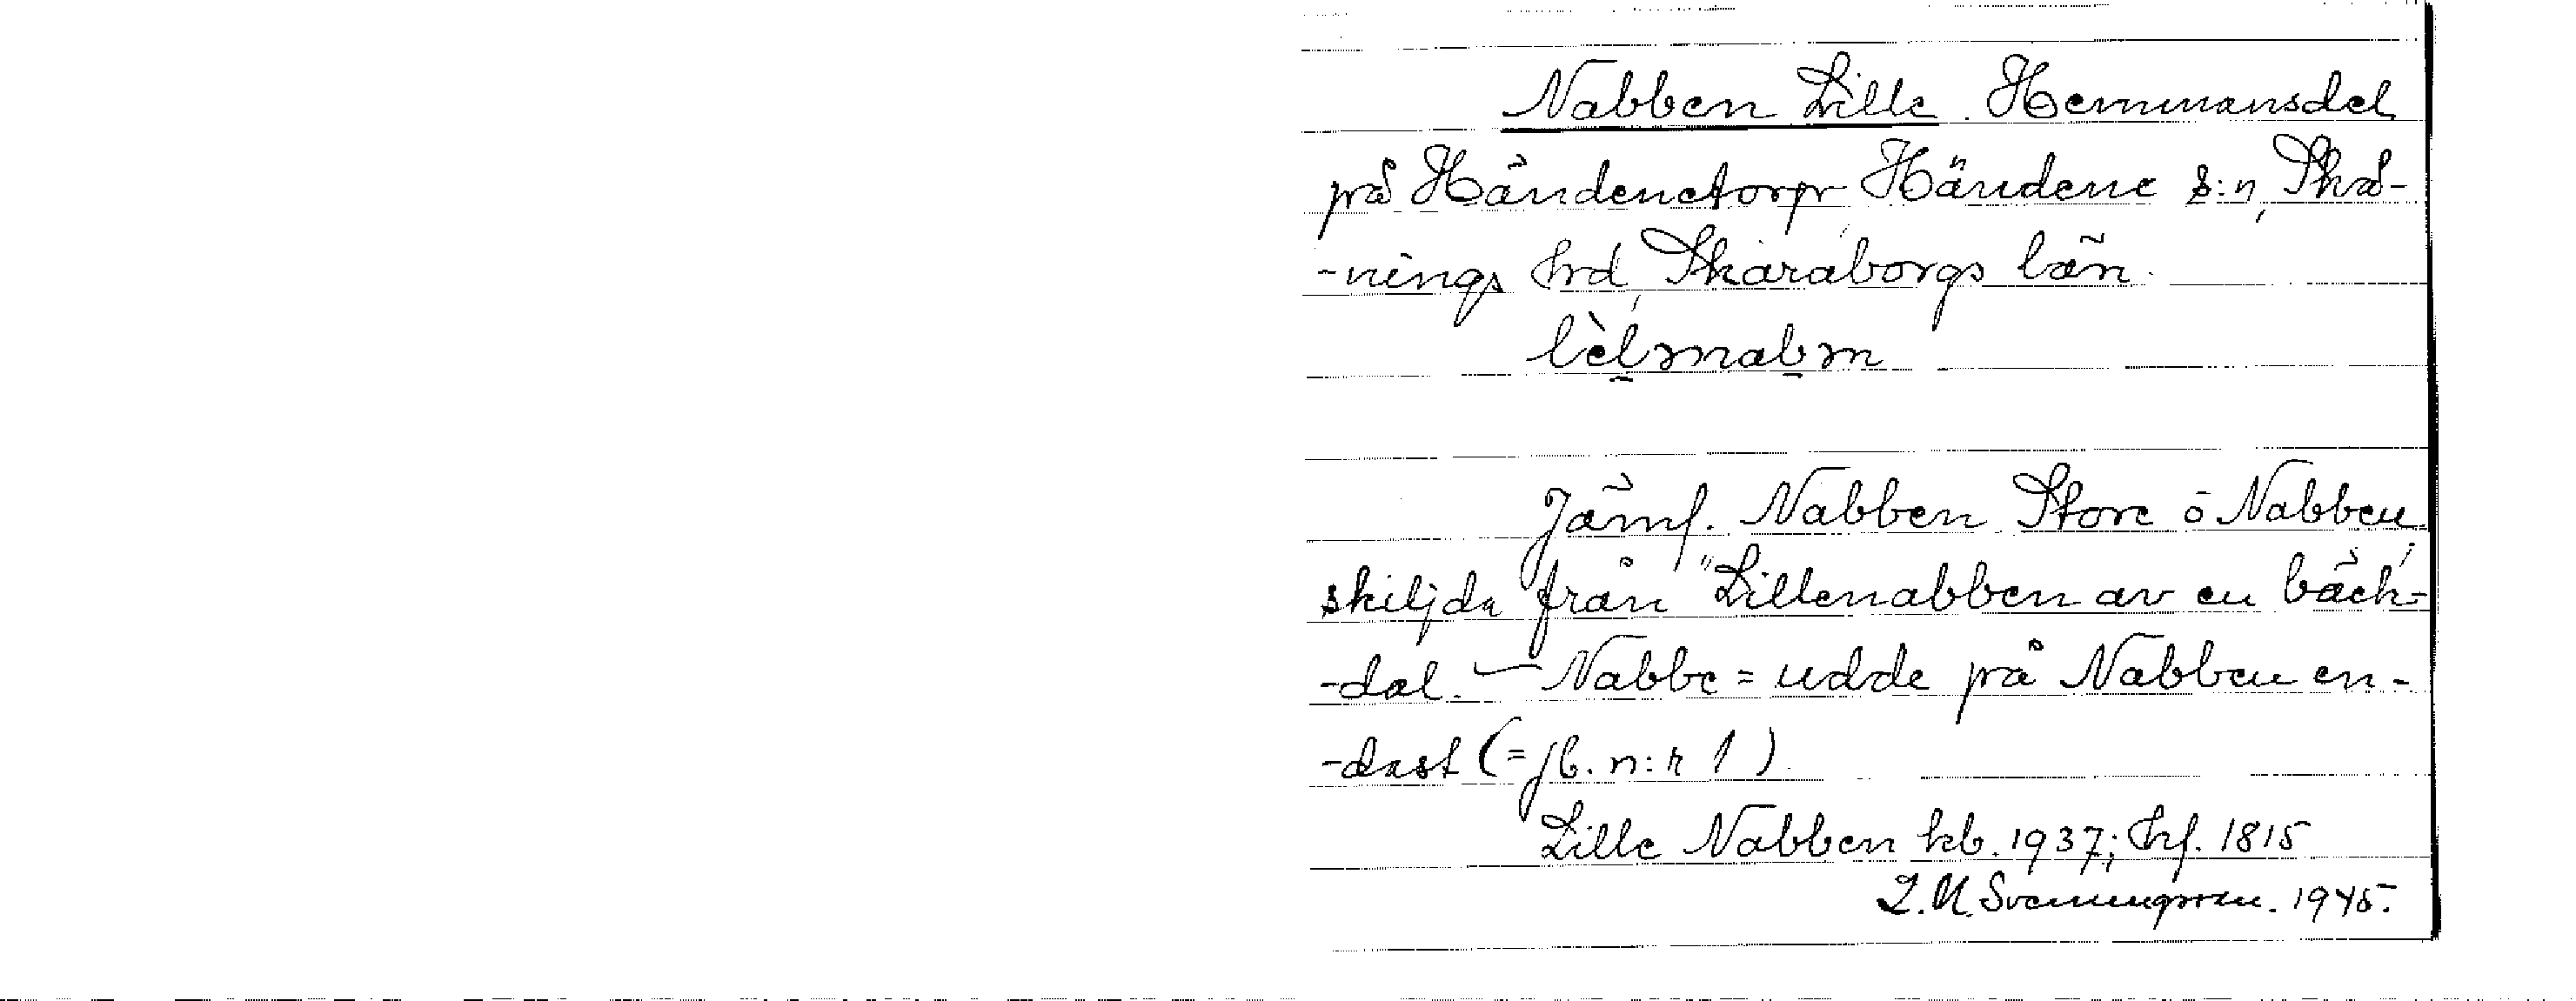 Nabben Lille. Hemmansdel
på Händenetorp, Händene s:n, Skå-
-nings hrd, Skaraborgs län.
Jämf. Nabben Store o Nabben,
skiljda från "Lillenabben av en bäck-
-dal. — Nabbe = udde på Nabben en-
-dast (= jb. n:r 1)
Lille Nabben kb. 1937; hf. 1815
L. M. Svenungsson. 1945.